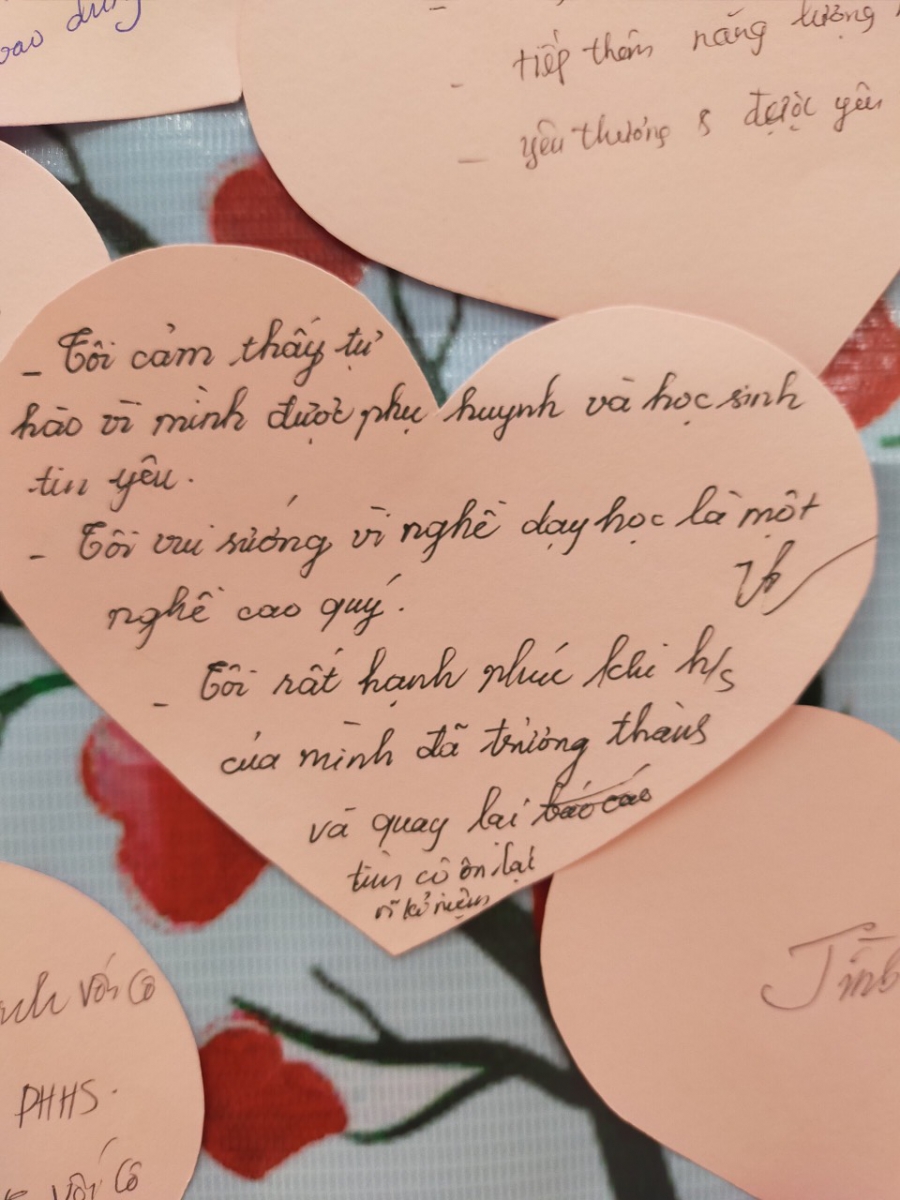 bao dung
- tiếp thêm năng lượng
- yêu thương & được yêu
- Tôi cảm thấy tự
hào vì mình được phụ huynh và học sinh
tin yêu.
- Tôi vui sướng vì nghề dạy học là một
nghề cao quý.
- Tôi rất hạnh phúc khi h/s
của mình đã trưởng thành
và quay lại báo cáo
tìm cô ôn lại
kỷ niệm
với Cô
PHHS.
với Cô